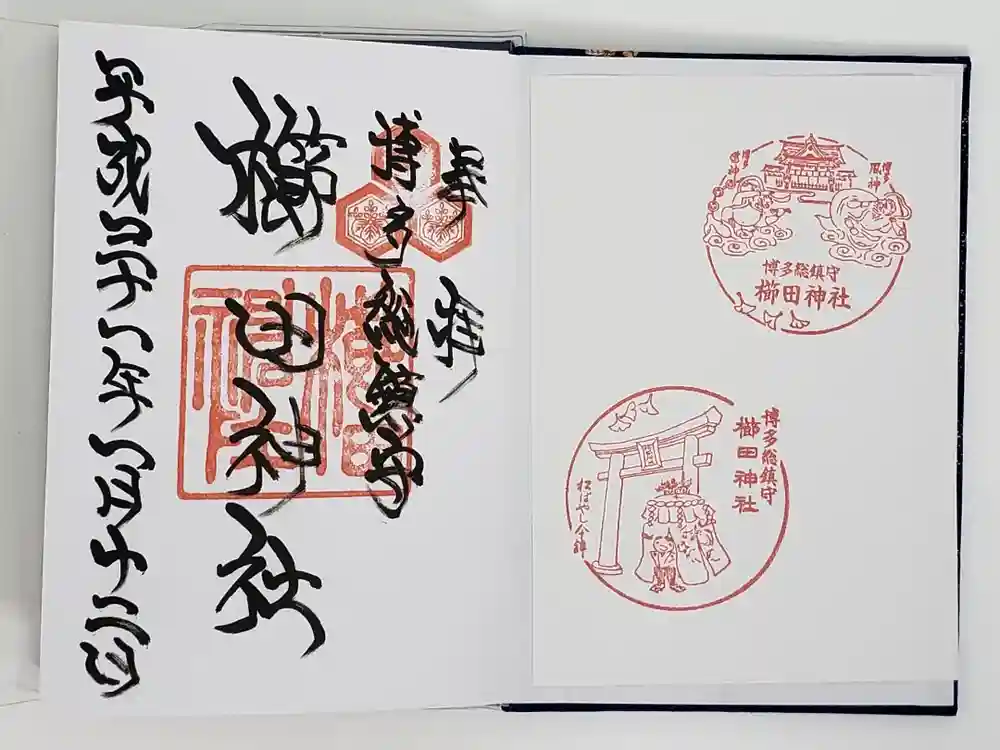 奉拝
博多総鎮守
櫛田神社
平成三十一年一月十二日
櫛田
神社
博多
風神
博多
雷神
博多総鎮守
櫛田神社
博多総鎮守
櫛田神社
松ばやし傘鉾